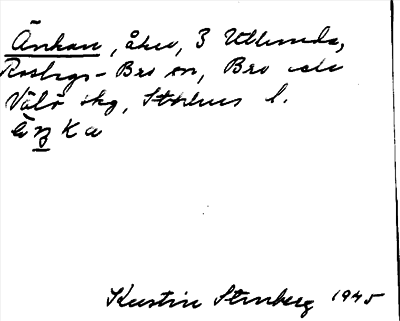 Änkan, åker, 3 Utlunda,
Roslags-Bro sn, Bro och
Vätö skg, Sthlms l.
Kerstin Stenberg 1945